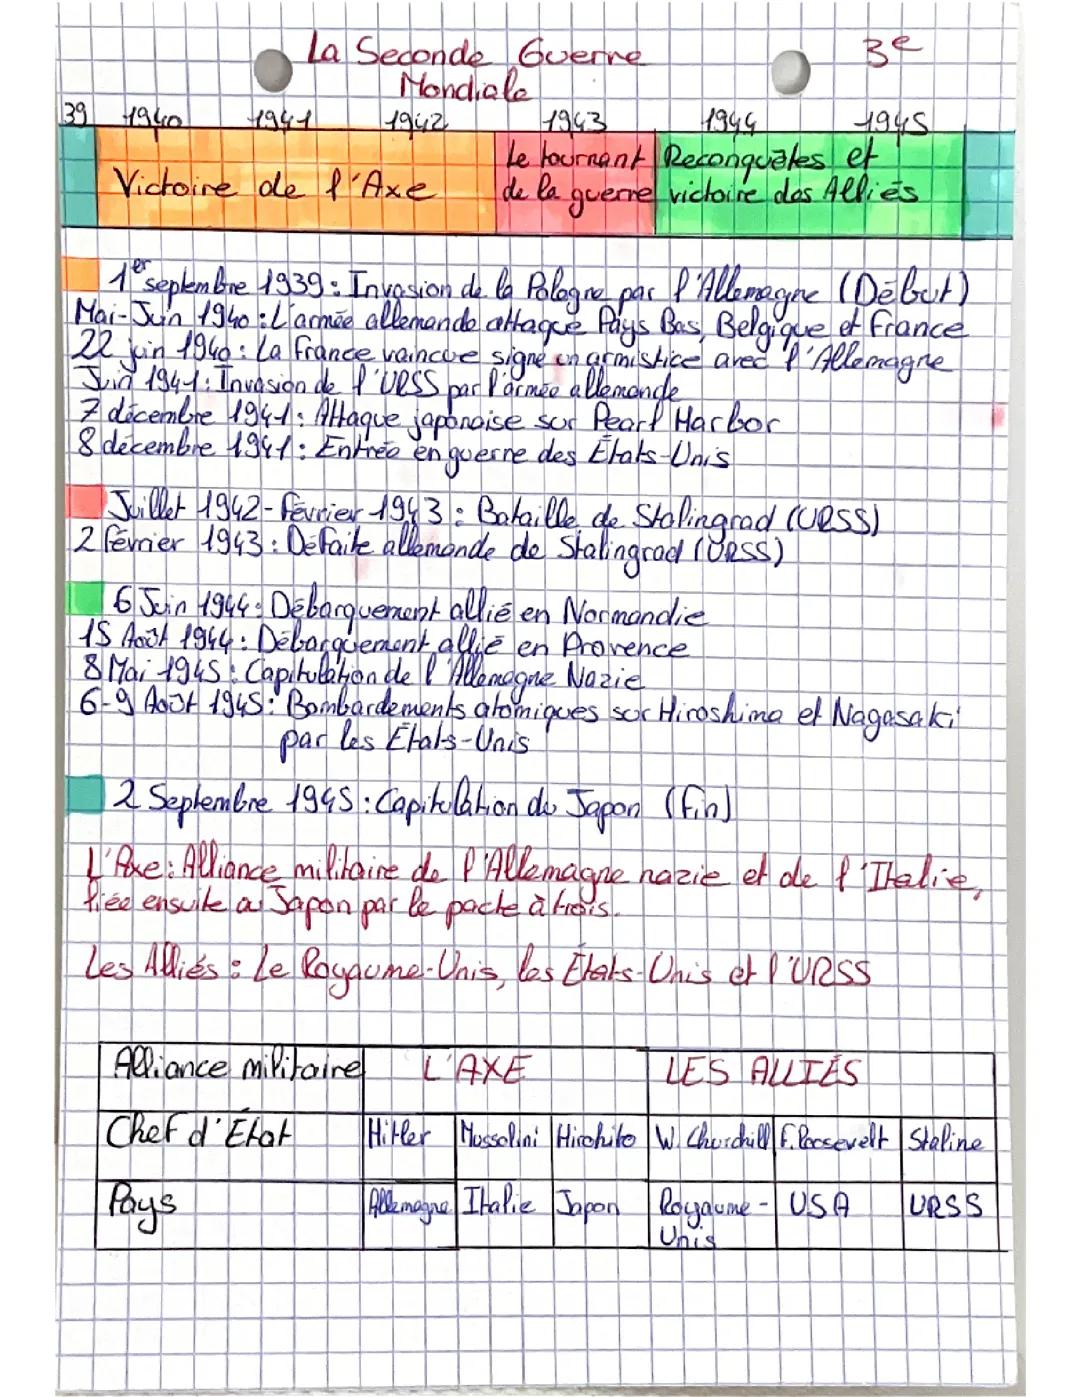 La Seconde Guerre 3e
Mondiale
39 1940 1941 1942 1943 1944 1945
Victoire de l'Axe
Le tournant de la guerre
Reconquêtes et victoire des Alliés
1er septembre 1939 : Invasion de la Pologne par l'Allemagne (Début)
Mai-Juin 1940 : L'armée allemande attaque Pays Bas, Belgique et France
22 juin 1940 : La France vaincue signe un armistice avec l'Allemagne
Juin 1941 : Invasion de l'URSS par l'armée allemande
7 décembre 1941 : Attaque japonaise sur Pearl Harbor
8 décembre 1941 : Entrée en guerre des États-Unis
Juillet 1942 - Février 1943 : Bataille de Stalingrad (URSS)
2 Février 1943 : Défaite allemande de Stalingrad (URSS)
6 Juin 1944 : Débarquement allié en Normandie
15 Août 1944 : Débarquement allié en Provence
8 Mai 1945 : Capitulation de l'Allemagne Nazie
6-9 Août 1945 : Bombardements atomiques sur Hiroshima et Nagasaki
par les États-Unis
2 Septembre 1945 : Capitulation du Japon (Fin)
L'Axe : Alliance militaire de l'Allemagne nazie et de l'Italie,
liée ensuite au Japon par le pacte à trois.
Les Alliés : Le Royaume-Unis, les États-Unis et l'URSS
Alliance militaire L'AXE LES ALLIÉS
Chef d'État Hitler Mussolini Hirohito W. Churchill F. Roosevelt Staline
Pays Allemagne Italie Japon Royaume-Unis USA URSS